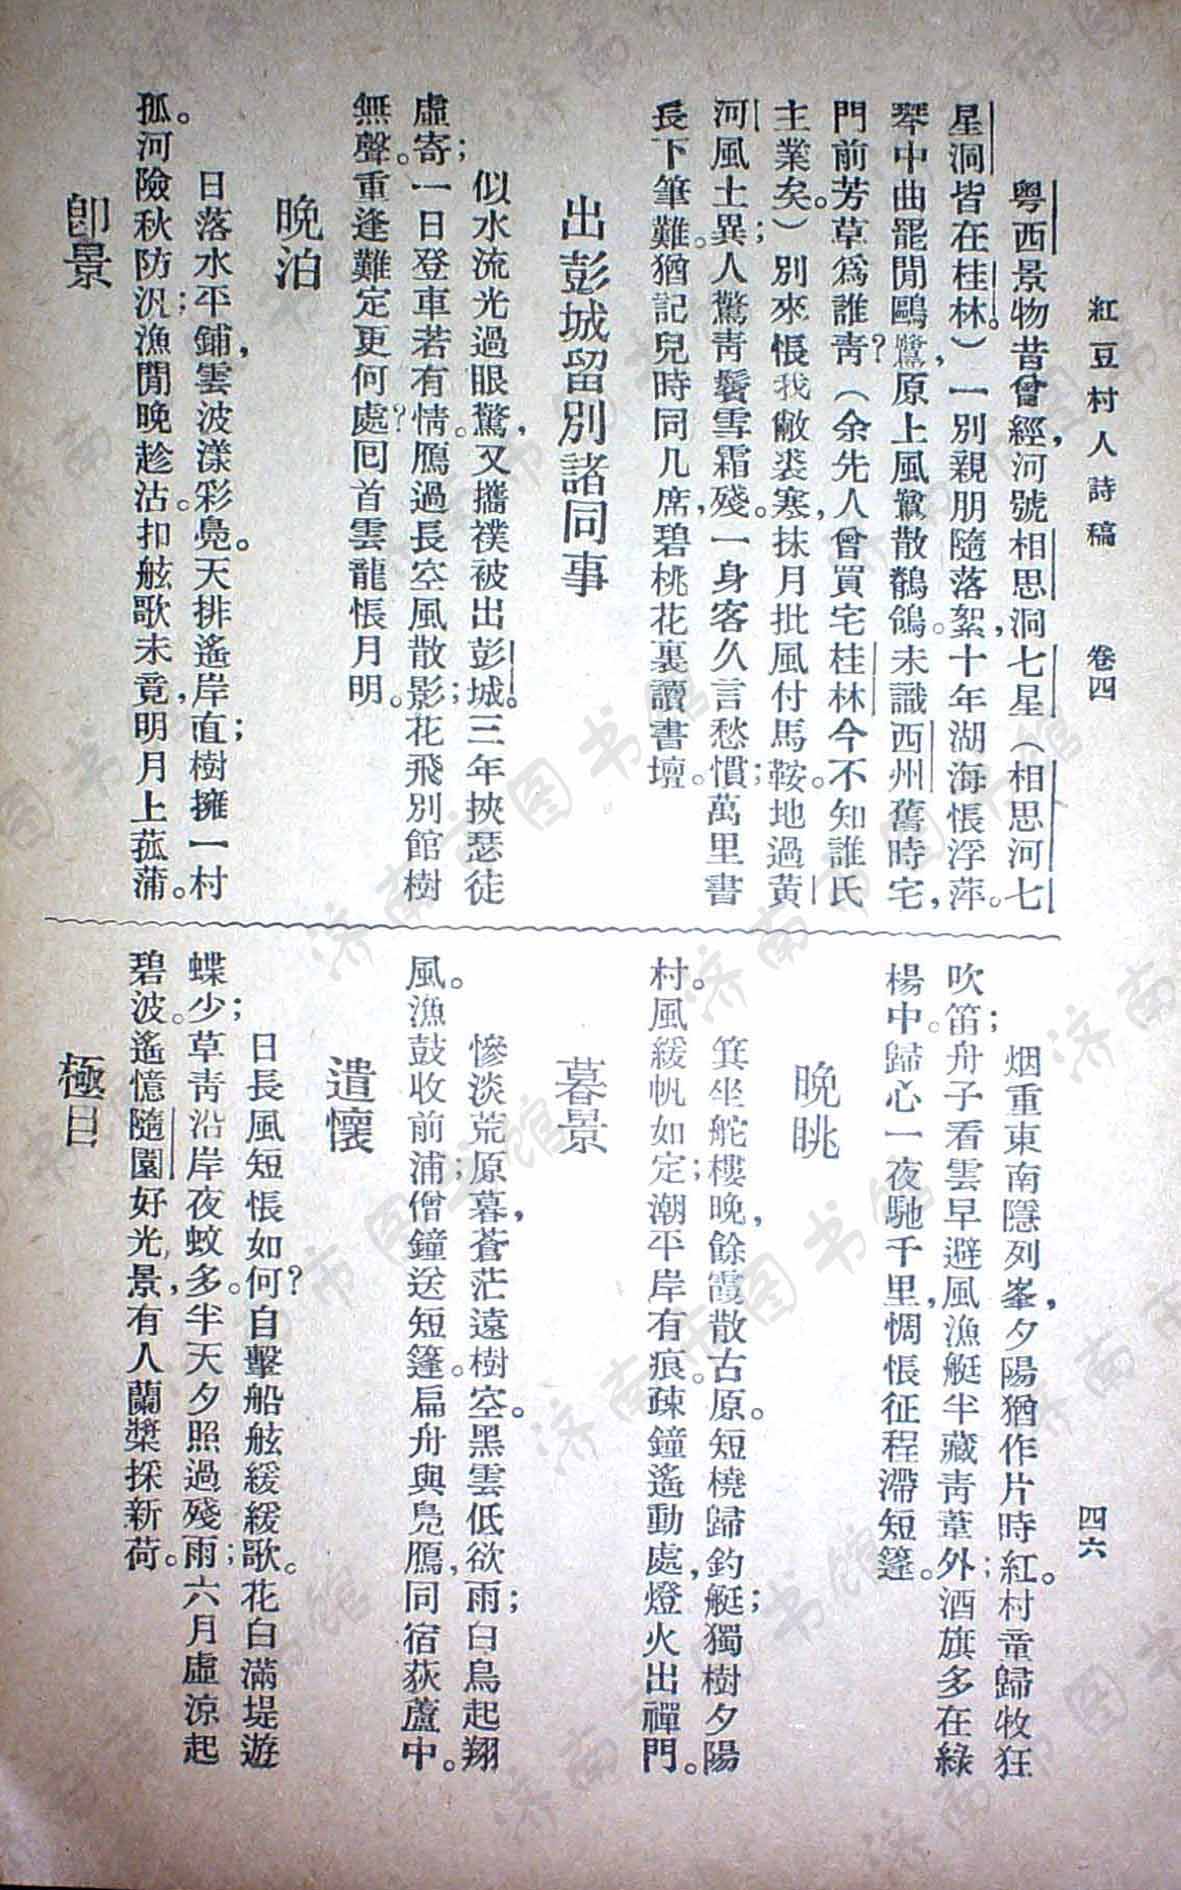 紅豆村人詩稿　卷四　四六
粵西景物昔曾經，河號相思洞七星（相思河七
星洞皆在桂林。）一別親朋隨落絮，十年湖海悵浮萍。
琴中曲罷閒鷗鷺，原上風驚散鶺鴒。未識西州舊時宅，
門前芳草爲誰靑？（余先人曾買宅桂林今不知誰氏
主業矣。）別來悵我敝裘寒，抹月批風付馬鞍；地過黃
河風土異，人驚靑鬢雪霜殘。一身客久言愁慣；萬里書
長下筆難。猶記兒時同几席，碧桃花裏讀書壇。
出彭城留別諸同事
似水流光過眼驚，又攜襆被出彭城。三年挾瑟徒
虛寄；一日登車若有情。鴈過長空風散影；花飛別館樹
無聲。重逢難定更何處？囘首雲龍悵月明。
晚泊
日落水平鋪，雲波漾彩鳧。天排遙岸直；樹擁一村
孤。河險秋防汎；漁閒晚趁沽。扣舷歌未竟，明月上菰蒲。
卽景
烟重東南隱列峯，夕陽猶作片時紅。村童歸牧狂
吹笛；舟子看雲早避風。漁艇半藏靑葦外；酒旗多在綠
楊中。歸心一夜馳千里，惆悵征程滯短篷。
晚眺
箕坐舵樓晚，餘霞散古原。短橈歸釣艇；獨樹夕陽
村。風緩帆如定；潮平岸有痕。疎鐘遙動處，燈火出禪門。
暮景
慘淡荒原暮，蒼茫遠樹空。黑雲低欲雨；白鳥起翔
風。漁鼓收前浦；僧鐘送短篷。扁舟與鳧鴈，同宿荻蘆中。
遣懷
日長風短悵如何？自擊船舷緩緩歌。花白滿堤遊
蝶少；草靑沿岸夜蚊多。半天夕照過殘雨；六月虛涼起
碧波。遙憶隨園好光景，有人蘭槳採新荷。
極目